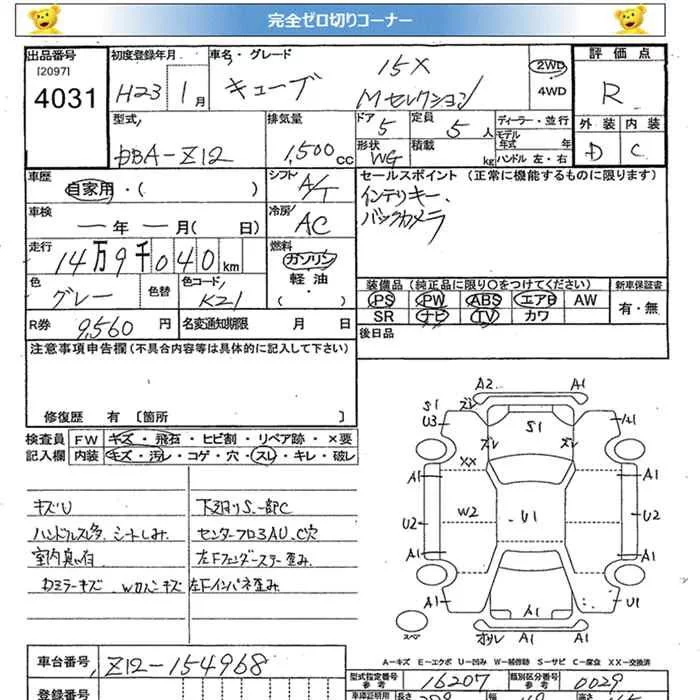 完全ゼロ切りコーナー
出品番号 初度登録年月 車名・グレード 評価点
[2097] 4031 H23 1月 キューブ 15X Mセレクション 2WD 4WD R
型式 排気量 ドア 定員 ディーラー・並行 外装 内装
DBA-Z12 1,500cc 5 5人 モデル年式 年 D C
形状 WG 積載 kg ハンドル 左・右
車歴 シフト セールスポイント (正常に機能するものに限ります)
自家用・( ) A/T インテリキー、
車検 冷房 バックカメラ
ー年ー月(日) AC
走行 燃料
14万9千040km ガソリン 軽油・( )
色 色替 色コード 装備品 (純正品に限り○をつけてください) 新車保証書
グレー K21 PS PW ABS エアB AW 有・無
SR ナビ TV カワ
R券 9,560円 名変通知期限 月 日 後日品
注意事項申告欄(不具合内容等は具体的に記入して下さい)
修復歴 有 [箇所 ]
検査員 FW キズ・飛石・ヒビ割・リペア跡・×要
記入欄 内装 キズ・汚レ・コゲ・穴・スレ・キレ・破レ
キズU 下廻りS、一部C
ハンドルスレ多、シートしみ、 センターフロアAU、C穴
室内臭い有 左Fフェンダーステー歪み、
左Fインパネ歪み
A2 A1
S1 ズレ
U3 S1 A1
ズレ ズレ
XX
A1 A1
W2
U2 U1 U2
A1 A1
A1 A1 U1
スペア オクレ A1
A-キズ E-エクボ U-凹み W-補修跡 S-サビ C-腐食 XX-交換済
車台番号 Z12-154968
型式指定番号 参考 16207 類別区分番号 参考 0029
登録番号 車庫証明用 長さ 幅 高さ